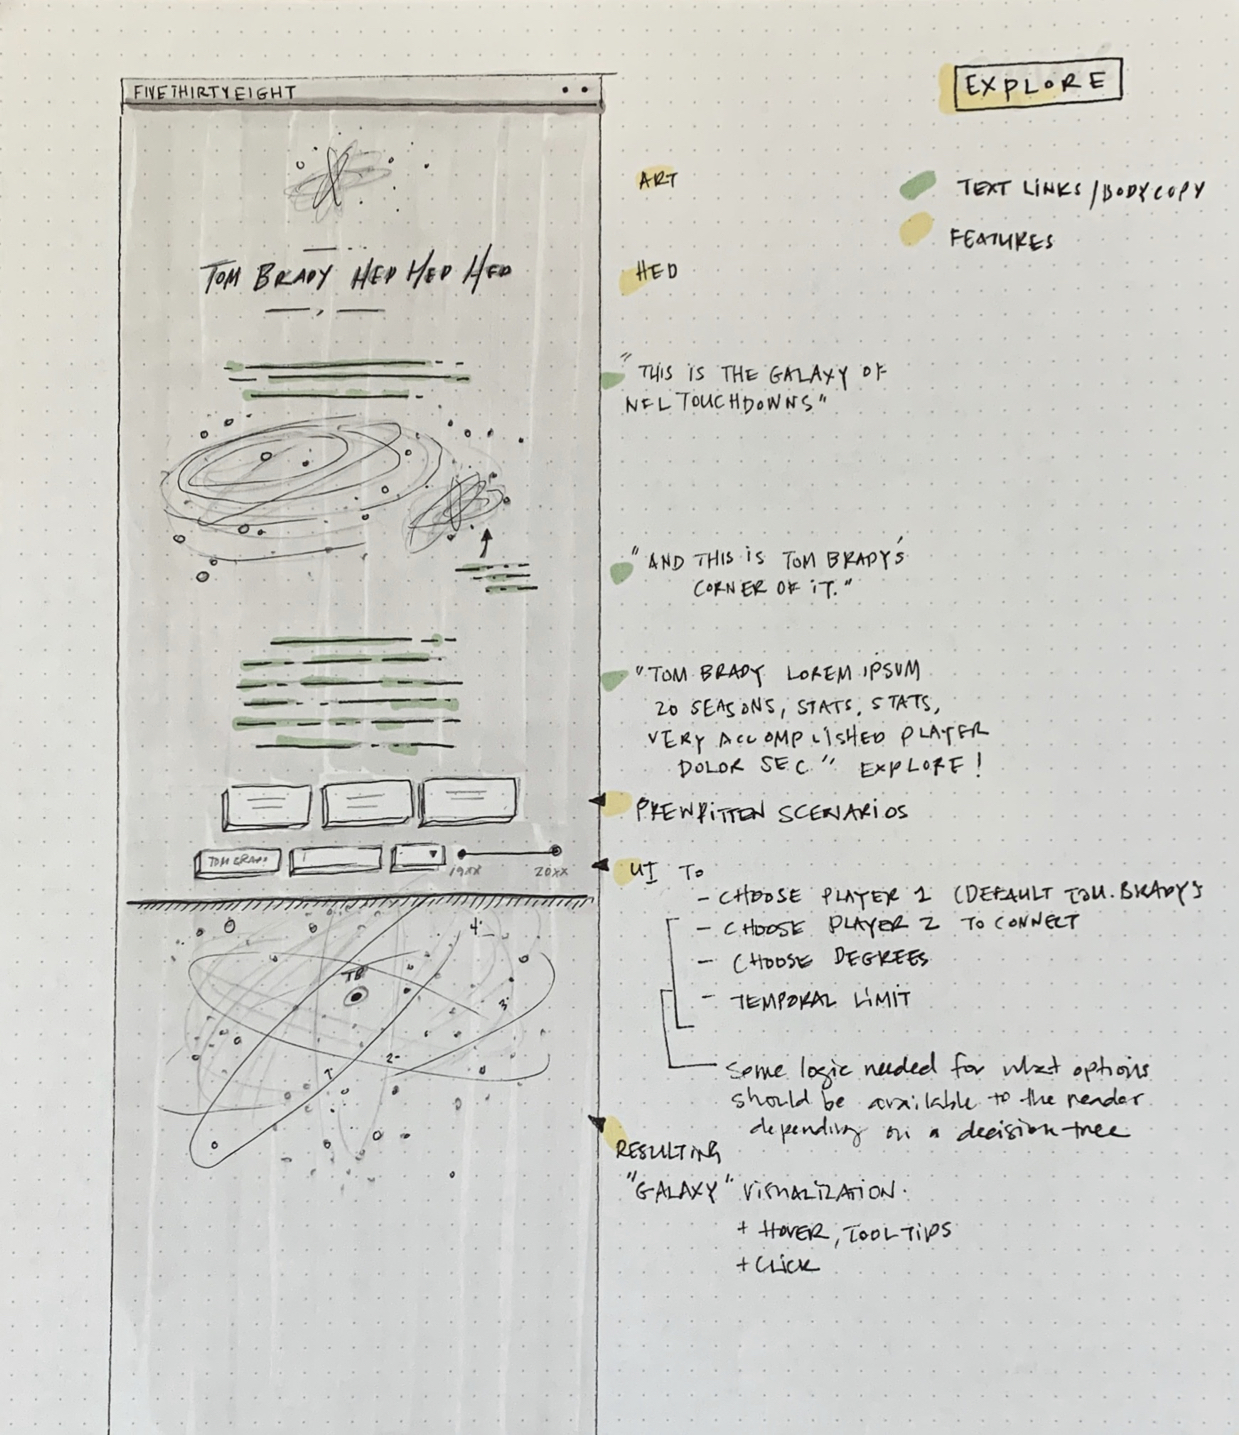 FIVETHIRTYEIGHT
EXPLORE
TEXT LINKS/BODYCOPY
FEATURES
ART
TOM BRADY HED HED HED
HED
"THIS IS THE GALAXY OF
NFL TOUCHDOWNS"
"AND THIS IS TOM BRADY'S
CORNER OF IT."
"TOM BRADY LOREM IPSUM
20 SEASONS, STATS, STATS,
VERY ACCOMPLISHED PLAYER
DOLOR SEC." EXPLORE!
PREWRITTEN SCENARIOS
TOM BRADY
19XX
20XX
UI TO
- CHOOSE PLAYER 1 (DEFAULT TOM BRADY)
- CHOOSE PLAYER 2 TO CONNECT
- CHOOSE DEGREES
- TEMPORAL LIMIT
Some logic needed for what options
should be available to the reader
depending on a decision tree
4
TB
3
2
1
RESULTING
"GALAXY" VISUALIZATION.
+ HOVER, TOOLTIPS
+ CLICK